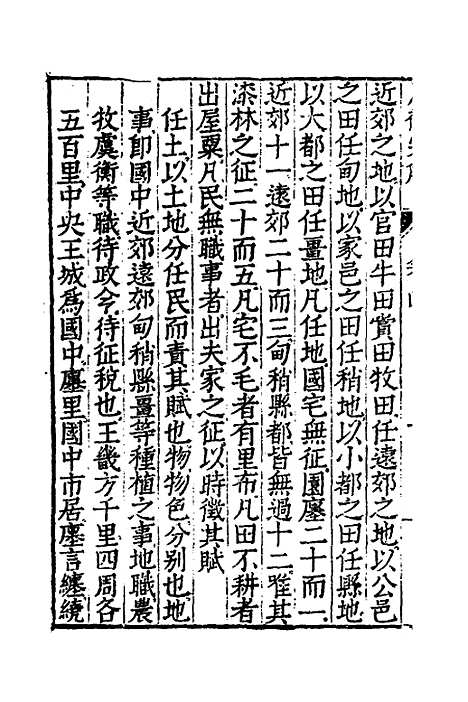 近郊之地以官田牛田賞田牧田任遠郊之地以公邑
之田任甸地以家邑之田任稍地以小都之田任縣地
以大都之田任畺地凡任地國宅無征園廛二十而一
近郊十一遠郊二十而三甸稍縣都皆無過十二唯其
漆林之征二十而五凡宅不毛者有里布凡田不耕者
出屋粟凡民無職事者出夫家之征以時徵其賦
任土以土地分任民而責其賦也物物色分别也地
事卽國中近郊遠郊甸稍縣畺等種植之事地職農
牧虞衡等職待政令待征稅也王畿方千里四周各
五百里中央王城爲國中廛里國中市居廛言纏繞